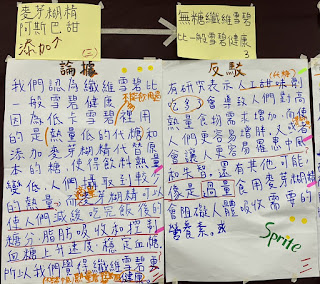 麥芽糊精
阿斯巴甜
添加↑
(三)
無糖纖維雪碧
比一般雪碧健康
3
論據
我們認為纖維雪碧比
一般雪碧健康
因為低卡雪碧裡用
的是(熱量低的代糖和
添加麥芽糊精代替原
本的糖,使得飲料熱量
變低,人們攝取到較少
的熱量,而麥芽糊精可以
使人們減緩吃完飯後的
糖分、脂肪吸收和控制
血糖上升速度、穩定血糖,
所以我們覺得纖維雪碧更
健康。
反駁
(代糖)
有研究表示人工甜味劑
吃多了會導致人們對高
熱量食物需求增加,而使
人們更容易增胖,又或者
會讓人更容易罹患中風
和失智,還有其他可能
像是過量食用麥芽糊精
會阻礙人體吸收需要的
營養素。
Sprite
三